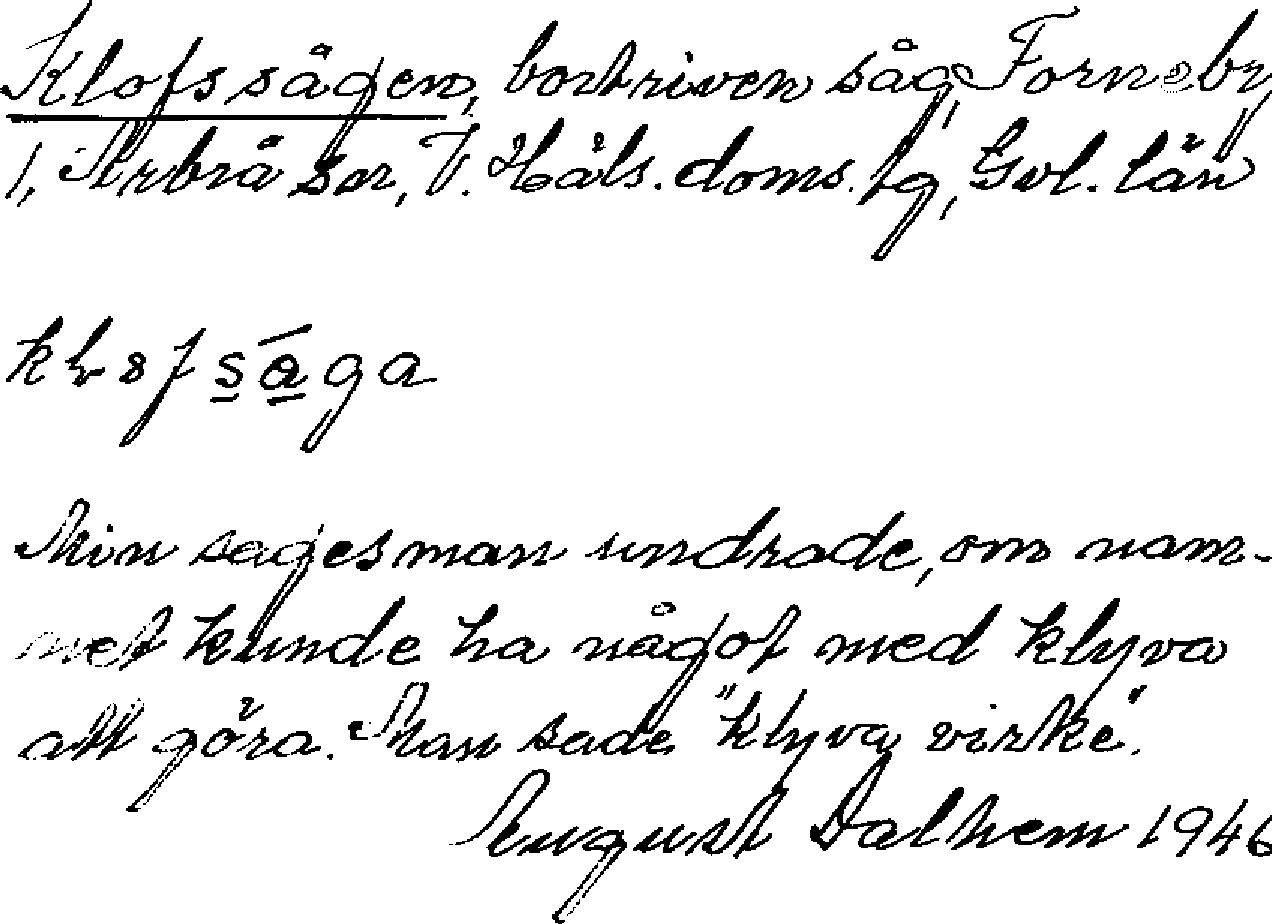 Klofssågen, bortriven såg, Forneby
1, Arbrå sn, V. Häls. doms. tg, Gvl. län
Min sagesman undrade, om nam-
net kunde ha något med klyva
att göra. Man sade "klyva virke".
August Dalhem 1946